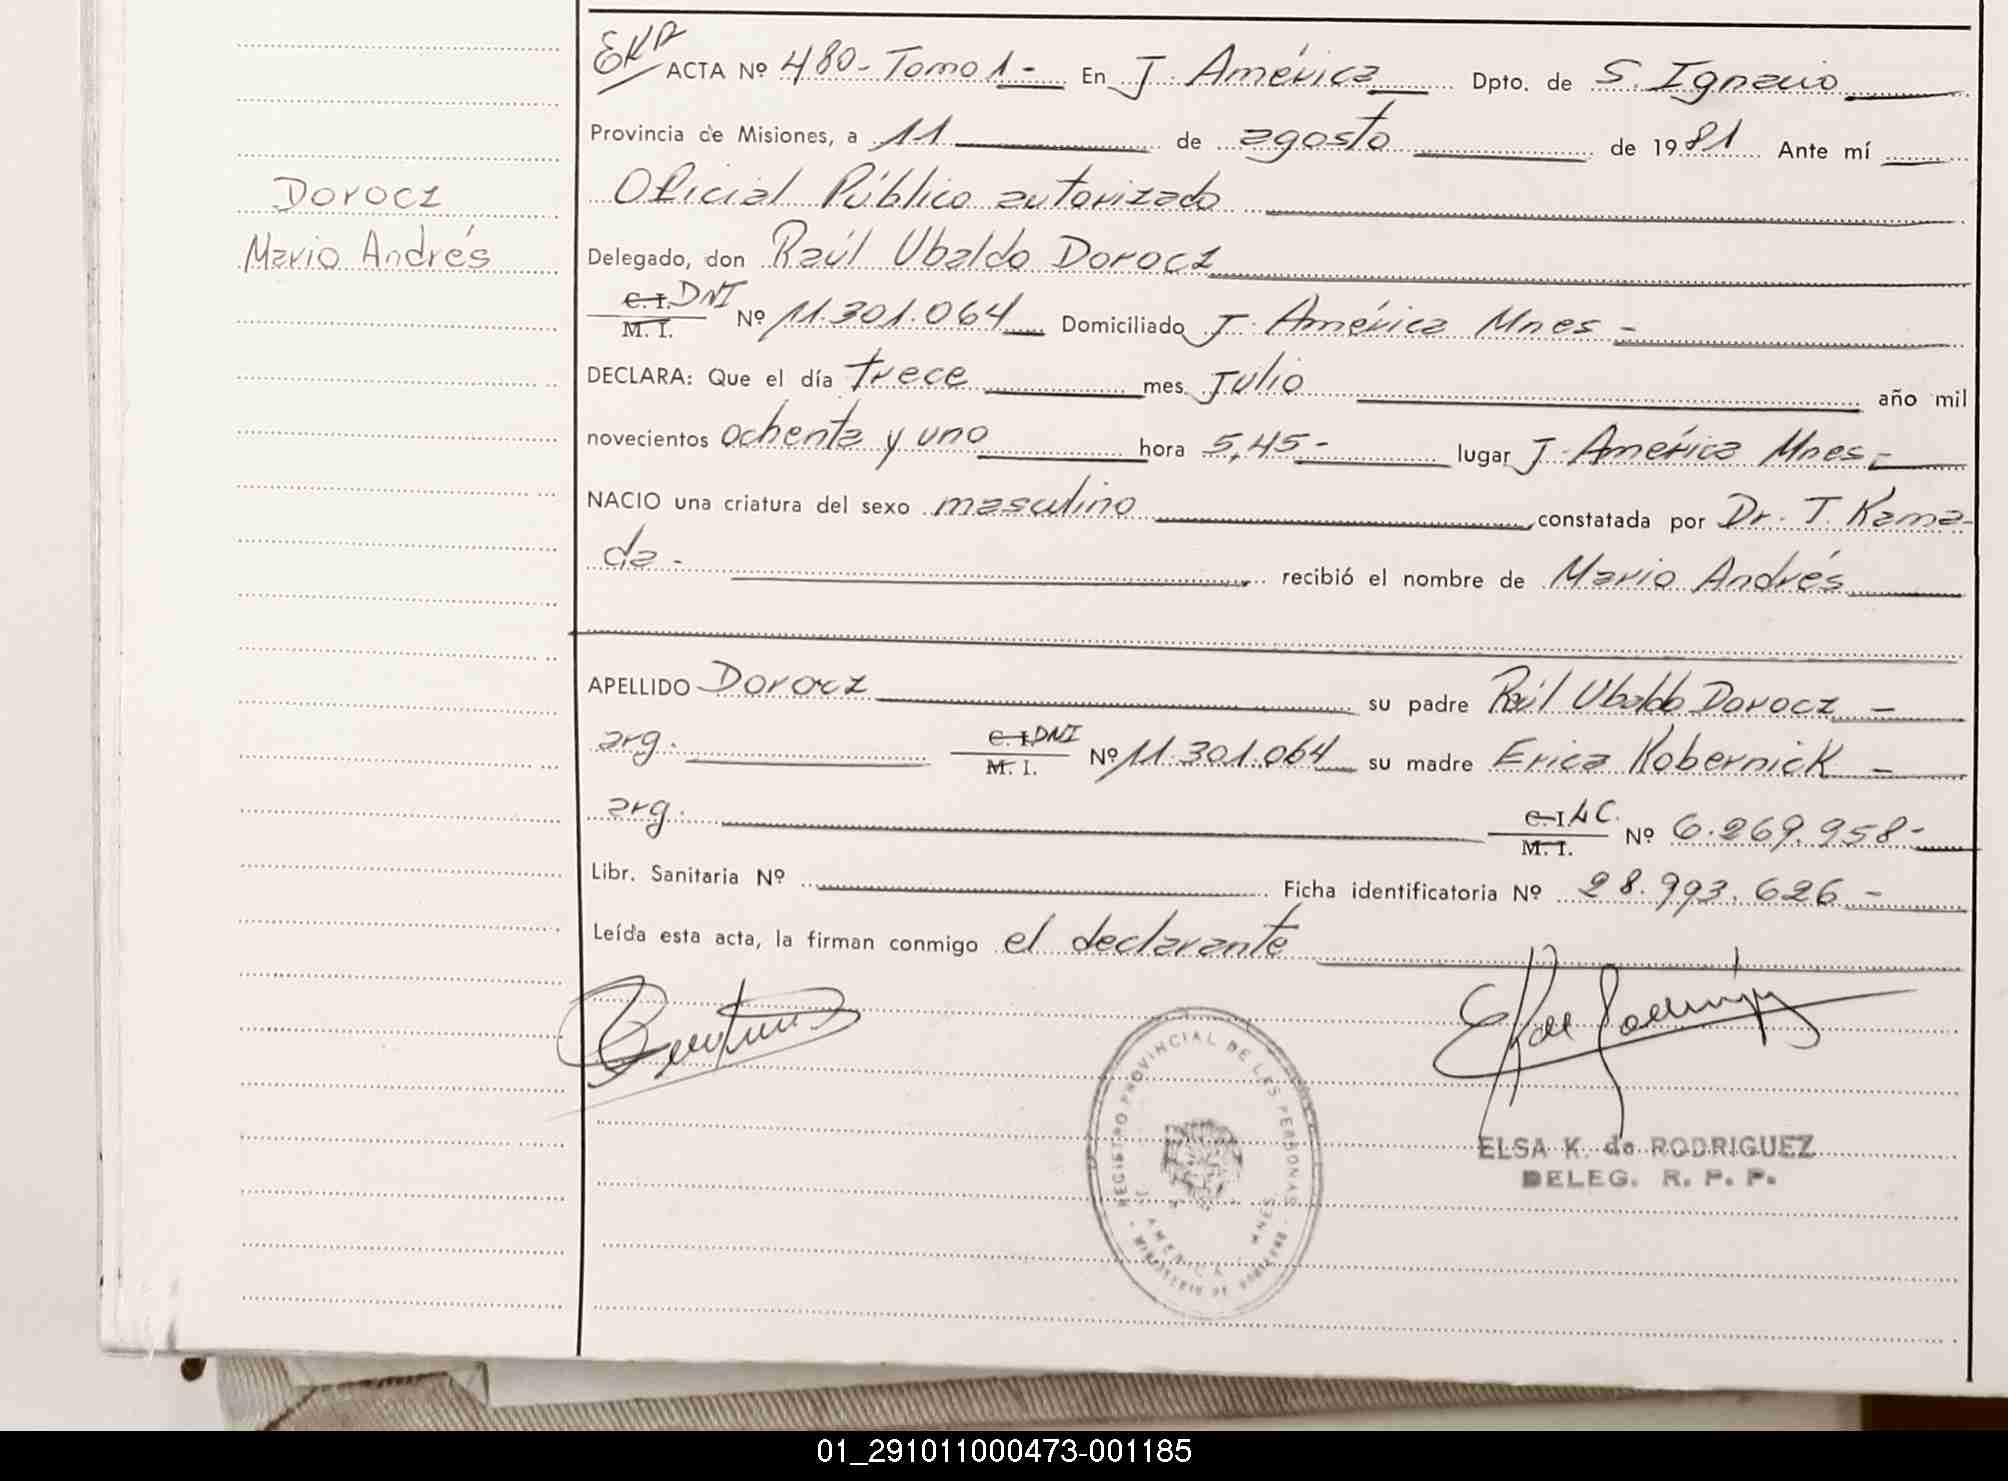 Dorocz
Mario Andrés
EKR ACTA Nº 480- Tomo 1- En J. América Dpto. de S. Ignacio
Provincia de Misiones, a 11 de agosto de 1981 Ante mí
Oficial Público autorizado
Delegado, don Raúl Ubaldo Dorocz
C. I. DNI
M. I. Nº 11.301.064 Domiciliado J. América Mnes -
DECLARA: Que el día trece mes Julio año mil
novecientos ochenta y uno hora 5,45- lugar J. América Mnes-
NACIO una criatura del sexo masculino constatada por Dr. T. Kama-
da - recibió el nombre de Mario Andrés
APELLIDO Dorocz su padre Raúl Ubaldo Dorocz -
arg. C. I. DNI
M. I. Nº 11.301.064 su madre Erica Kobernick -
arg. C. I. LC.
M. I. Nº 6.269.958-
Libr. Sanitaria Nº Ficha identificatoria Nº 28.993.626-
Leída esta acta, la firman conmigo el declarante
REGISTRO PROVINCIAL DE LAS PERSONAS
J. AMERICA MNES
MINISTERIO DE GOBIERNO
ELSA K. de RODRIGUEZ
DELEG. R. P. P.
01_291011000473-001185